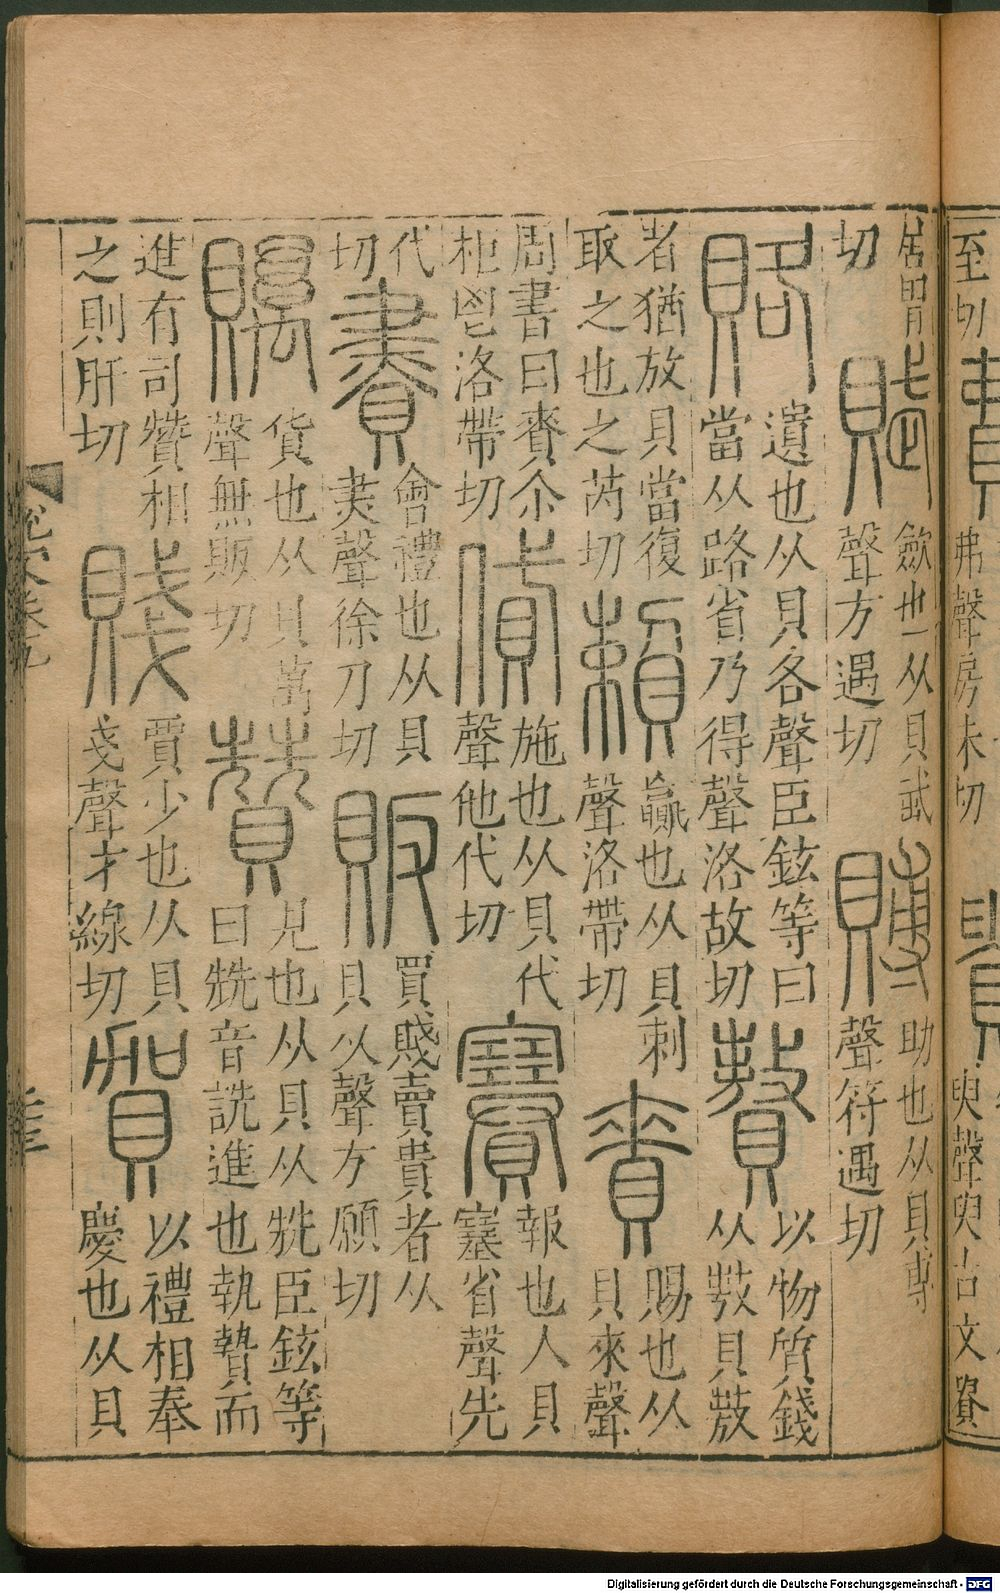 至切 費 弗聲房未切 貴 臾聲臾古文蕢
居胃切 賦 斂也从貝武聲方遇切 賻 助也从貝尃聲符遇切
賂 遺也从貝各聲臣鉉等曰當从路省乃得聲洛故切 贅 以物質錢从敖貝敖
者猶放貝當復取之也之芮切 賴 贏也从貝剌聲洛帶切 賚 賜也从貝來聲
周書曰賚尒秬鬯洛帶切 貸 施也从貝代聲他代切 賽 報也人貝塞省聲先
代切 賮 會禮也从貝㶳聲徐刀切 販 買賤賣貴者从貝反聲方願切
贎 貨也从貝萬聲無販切 贊 見也从貝从兟臣鉉等曰兟音詵進也執贄而
進有司贊相之則肝切 賤 賈少也从貝戔聲才線切 賀 以禮相奉慶也从貝
說文卷九
Digitalisierung gefördert durch die Deutsche Forschungsgemeinschaft - DFG